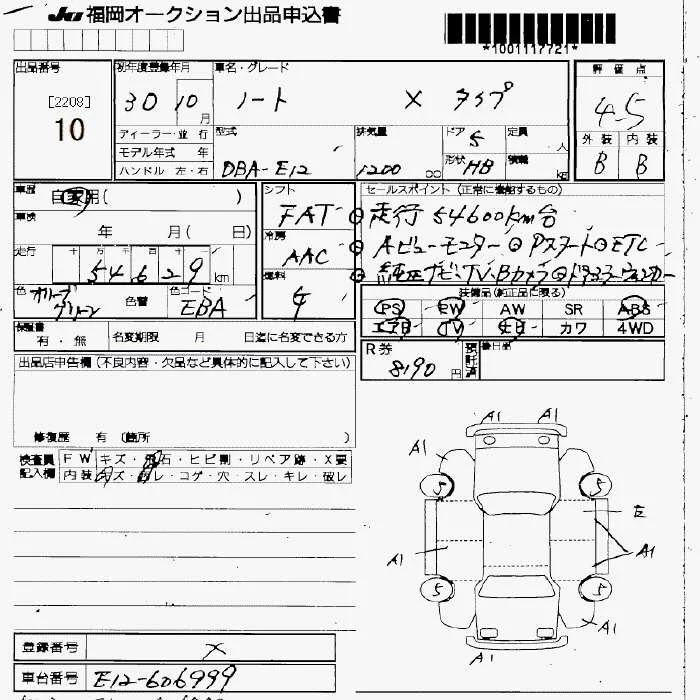 JU 福岡オークション出品申込書
*1001117721*
出品番号 初年度登録年月 車名・グレード 評価点
[2208]
10
30 10 月 ノート X タイプ 4.5
ディーラー・並行 型式 排気量 ドア 5 定員 人 外装 内装
モデル年式 年 DBA-E12 1200 cc 形状 HB 積載 kg B B
ハンドル 左・右
車歴 自家用( ) シフト セールスポイント (正常に機能するもの)
車検 年 月( 日) FAT 走行 54600km台
冷房 Aビューモニター Pスタート ETC
走行 54629 km AAC 純正ナビTV・Bカメラ
色 オリーブグリーン 色替 色コード EBA 燃料 ガ 装備品(純正品に限る)
PS PW AW SR ABS
エアB TV ナビ カワ 4WD
保証書 有・無 名変期限 月 日迄に名変できる方
R券 8190 円 預託済 後日品
出品店申告欄 (不良内容・欠品など具体的に記入して下さい)
修復歴 有 (箇所 )
検査員 FW キズ・飛石・ヒビ割・リペア跡・X要
記入欄 内装 キズ・汚レ・コゲ・穴・スレ・キレ・破レ
A1 A1
A1
5 5
E
A1 A1
5 5
A1
A1
登録番号 X
車台番号 E12-606999